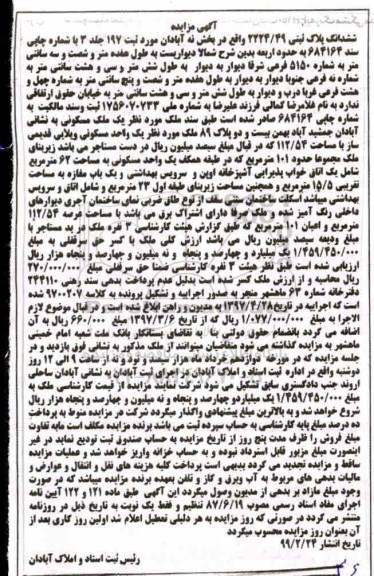 آگهی مزایده
ششدانگ پلاک ثبتی ۲۲۲۴/۴۹ واقع در بخش نه آبادان مورد ثبت ۱۹۷ جلد ۳ با شماره چاپی
سند ۶۸۴۱۶۴ به حدود اربعه بدین شرح شمالا دیواریست به طول هفده متر و شصت و سه سانتی
متر به شماره ۵۱۵۰ فرعی شرقا دیوار به دیوار به طول شش متر و سی و هشت سانتی متر به
شماره نه فرعی جنوبا دیوار به دیوار به طول هفده متر و شصت و پنج سانتی متر به شماره چهل و
هشت فرعی غربا درب و دیوار به طول شش متر و سی و هشت سانتی متر به خیابان حقوق ارتفاقی
ندارد به نام غلامرضا کمالی فرزند علیرضا به شماره ملی ۱۷۵۶۰۷۰۷۳۳ ثبت وسند مالکیت به
شماره چاپی ۶۸۴۱۶۴ صادر شده است طبق سند ملک مورد نظر یک ملک مسکونی به نشانی
آبادان جمشید آباد بهمن بیست و دو پلاک ۸۹ ملک مورد نظر یک واحد مسکونی ویلایی قدیمی
ساز با مساحت ۱۱۲/۵۴ که در قبال مبلغ سیصد میلیون ریال در دست مستاجر می باشد زیربنای
ملک مجموعا حدود ۱۰۱ مترمربع که در طبقه همکف یک واحد مسکونی به مساحت ۶۲ مترمربع
شامل یک اتاق خواب پذیرایی آشپزخانه اوپن و سرویس بهداشتی و یک باب مغازه به مساحت
تقریبی ۱۵/۵ مترمربع و همچنین مساحت زیربنای طبقه اول ۲۳ مترمربع و شامل اتاق و سرویس
بهداشتی میباشد اسکلت ساختمان بتنی سقف از نوع طاق ضربی نمای ساختمان آجری دیوارهای
داخلی رنگ آمیز شده و ملک صرفا دارای اشتراک برق می باشد با مساحت عرصه ۱۱۲/۵۴
مترمربع و اعیان ۱۰۱ مترمربع که طبق گزارش هیئت کارشناسی ۳ نفره ملک در ید مستاجر با
مبلغ ودیعه سیصد میلیون ریال می باشد ارزش کلی ملک با کسر حق سرقفلی به مبلغ
۱/۴۵۹/۴۵۰/۰۰۰ یک میلیارد و چهارصد و پنجاه و نه میلیون و چهارصد و پنجاه هزار ریال
ارزیابی شده است طبق نظر هیئت ۳ نفره کارشناسی ضمنا حق سرقفلی مبلغ ۲۷۰/۰۰۰/۰۰۰
ریال محاسبه و از ارزش ملک کسر شده است بدلیل عدم پرداخت بدهی سند رهنی ۲۴۴۱۱۰
دفترخانه شماره ۶۳ ماهشهر منجر به صدور اجراییه و تشکیل پرونده به کلاسه ۹۷۰۰۲۰۷ شده
است که اجراییه در تاریخ ۱۳۹۷/۴/۲۸ به مدیون و راهن ابلاغ شده است و در قبال موضوع لازم
الاجرا به مبلغ ۱/۰۷۷/۰۰۰/۰۰۰ ریال که از تاریخ ۱۳۹۷/۳/۶ مبلغ ۶۶۰/۰۰۰ ریال به آن
اضافه می گردد بانضمام حقوق دولتی بنا به تقاضای بستانکار بانک ملت شعبه امام خمینی
ماهشهر به مزایده گذاشته می شود متقاضیان میتوانند از ملک مذکور به نشانی فوق بازدید و در
جلسه مزایده که در مورخه دوازدهم خرداد ماه هزار سیصد و نود و نه از ساعت ۹ الی ۱۲ روز
دوشنبه واقع در اداره ثبت اسناد و املاک آبادان در اجرای ثبت آبادان به نشانی آبادان ساحلی
اروند جنب دادگستری سابق تشکیل می شود شرکت نمایند مزایده از قیمت کارشناسی ملک به
مبلغ ۱/۴۵۹/۴۵۰/۰۰۰ یک میلیاردو چهارصد و پنجاه و نه میلیون و چهارصد و پنجاه هزار ریال
شروع خواهد شد و به بالاترین مبلغ پیشنهادی واگذار میگردد شرکت در مزایده منوط به پرداخت
ده درصد مبلغ پایه کارشناسی به حساب سپرده ثبت می باشد برنده مزایده مکلف است مابه تفاوت
مبلغ فروش را ظرف مدت پنج روز از تاریخ مزایده به حساب صندوق ثبت تودیع نماید در غیر
اینصورت مبلغ مزبور قابل استرداد نبوده و به حساب خزانه واریز خواهد شد و عملیات مزایده
ساقط و مزایده تجدید می گردد بدیهی است پرداخت کلیه هزینه های نقل و انتقال و عوارض و
مالیات بدهی های مربوط به آب وبرق و گاز و تلفن بعهده برنده مزایده میباشد که در صورت
وجود مبلغ مازاد بر بدهی از مدیون وصول میگردد این آگهی طبق ماده ۱۲۱ و ۱۲۲ آیین نامه
اجرای مفاد اسناد رسمی مصوب ۸۷/۶/۱۹ تنظیم و فقط یک نوبت به تاریخ ذیل در روزنامه
منتشر می گردد در صورتی که روز مزایده به هر دلیلی تعطیل اعلام شد اولین روز کاری بعد از
آن بعنوان روز مزایده محسوب میگردد
تاریخ انتشار ۹۹/۲/۲۴
رئیس ثبت اسناد و املاک آبادان